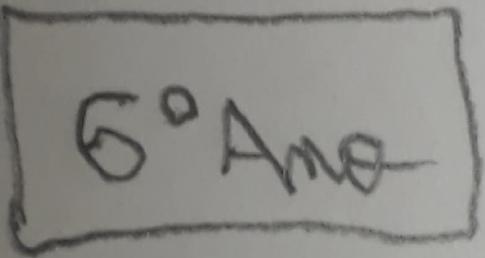 6º Ano